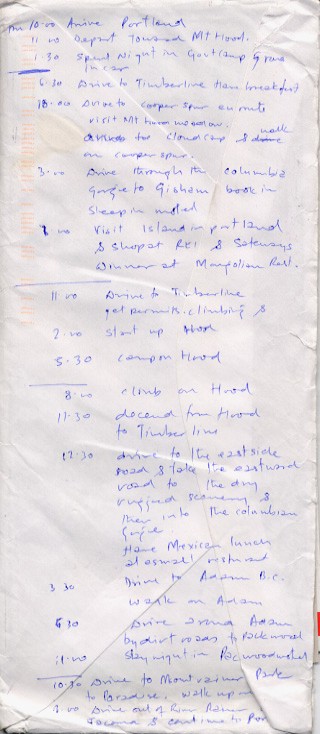 10:00 Arrive Portland
11 00 Depart Toward Mt Hood.
1.30 Spent Night in Govt Camp
in car
6.30 Drive to Timberline Have breakfast
10.00 Drive to cooper spur en route
visit Mt Hood meadow.
for cloud cap & walk
on cooper spur.
3.00 Drive through the columbia
Gorge to book in
Sleep in motel
Visit Island in portland
& Shop at REI & Safeways
Dinner at Mongolian Rest.
11.00 Drive to Timberline
get permits. climbing &
2.00 start up Hood
5.30 camp on Hood
8.00 climb on Hood
11.30 decend from Hood
to Timberline
12.30 drive to the east side
road & take the eastward
road to the dry
rugged scenery &
then into the columbian
Gorge
Have Mexican lunch
at small
3 30 Drive to Adam B.C.
walk on Adam
Drive around Adam
by dirt roads to Packwood
11.00 Stay night in
10.30 Drive to Mount rainier Park
to Paradise. walk up
Drive out of
Tacoma & continue to